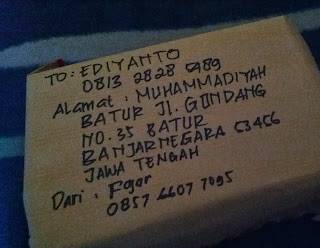 TO: EDIYANTO
0813 2828 5989
Alamat : MUHAMMADIYAH
BATUR Jl. GONDANG
NO. 35 BATUR
BANJARNEGARA 53456
JAWA TENGAH
Dari : Fajar
0857 6607 7095